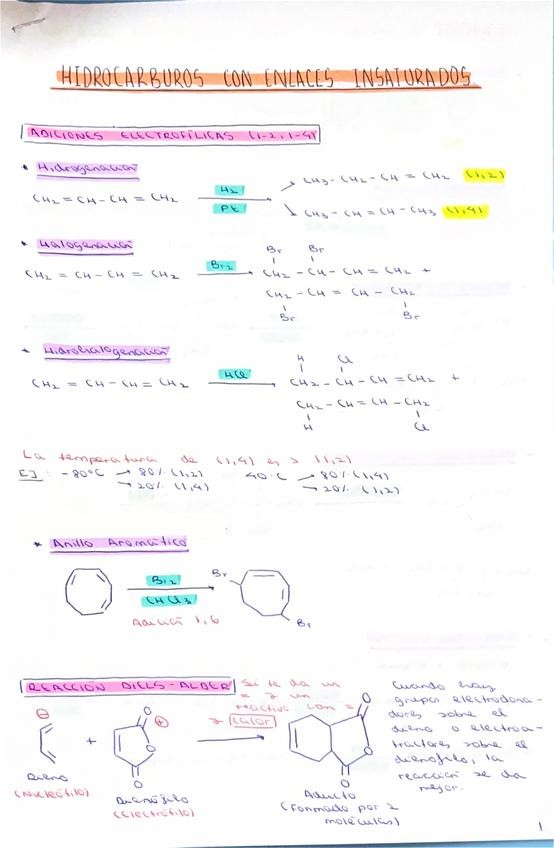 HIDROCARBUROS CON ENLACES INSATURADOS
ADICIONES ELECTROFÍLICAS (1-2, 1-4)
• Hidrogenación
CH2=CH-CH=CH2 H2 Pt CH3-CH2-CH=CH2 (1,2)
CH3-CH=CH-CH3 (1,4)
• Halogenación
Br Br
CH2=CH-CH=CH2 Br2 CH2-CH-CH=CH2 +
CH2-CH=CH-CH2
Br Br
• Hidrohalogenación
H Cl
CH2=CH-CH=CH2 HCl CH2-CH-CH=CH2 +
CH2-CH=CH-CH2
H Cl
La temperatura de (1,4) es > (1,2)
EJ: -80°C → 80% (1,2) 40°C → 80% (1,4)
→ 20% (1,4) → 20% (1,2)
• Anillo Aromático
Br2 Br
CHCl3
Adición 1,6 Br
REACCIÓN DIELS-ALDER
Si te da un
= y un
reactivo con =
y calor
⊖ + O O ⊕ O
O O O
Dieno
(Nucleófilo)
Dienófilo
(Electrófilo)
Aducto
(Formado por 2
moléculas)
Cuando hay
grupos electrodona-
dores sobre el
dieno o electroa-
tractores sobre el
dienófilo, la
reacción se da
mejor.
1